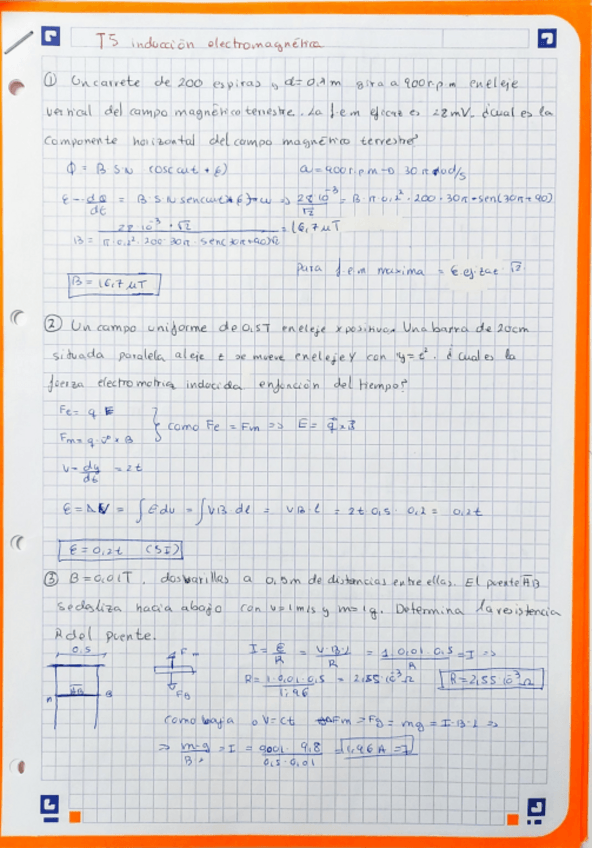 T5 inducción electromagnética
① Un carrete de 200 espiras y d=0,2m gira a 900 r.p.m en el eje
vertical del campo magnético terrestre. La f.e.m eficaz es 28mV. ¿cual es la
componente horizontal del campo magnético terrestre?
Φ = B S N cos(ωt + φ) ω=900 r.p.m → 30π rad/s
B = 16,7 μT
Para f.e.m maxima = ε eficaz √2
② Un campo uniforme de 0,5T en el eje x positivo. Una barra de 20cm
situada paralela al eje z se mueve en el eje Y con y=t². ¿cual es la
fuerza electromotriz inducida en función del tiempo?
Fe = q E
como Fe = Fm =>
v = dy/dt = 2t
ε = ΔV = ∫ E dv = ∫ vB · dl = v B · l = 2t 0,5 · 0,2 = 0,2t
ε = 0,2t (SI)
③ B = 0,01T, dos varillas a 0,5m de distancias entre ellas. El puente AB
se desliza hacia abajo con v=1m/s y m=1g. Determina la resistencia
R del puente.
0,5
AB
A B
Fm
Fg
I = ε/R = V·B·L/R = 1·0,01·0,5/R = I =>
R = 1·0,01·0,5/1,96 = 2,55·10⁻³ Ω R = 2,55·10⁻³ Ω
como baja a V=ct Fm = Fg = mg = I·B·L =>